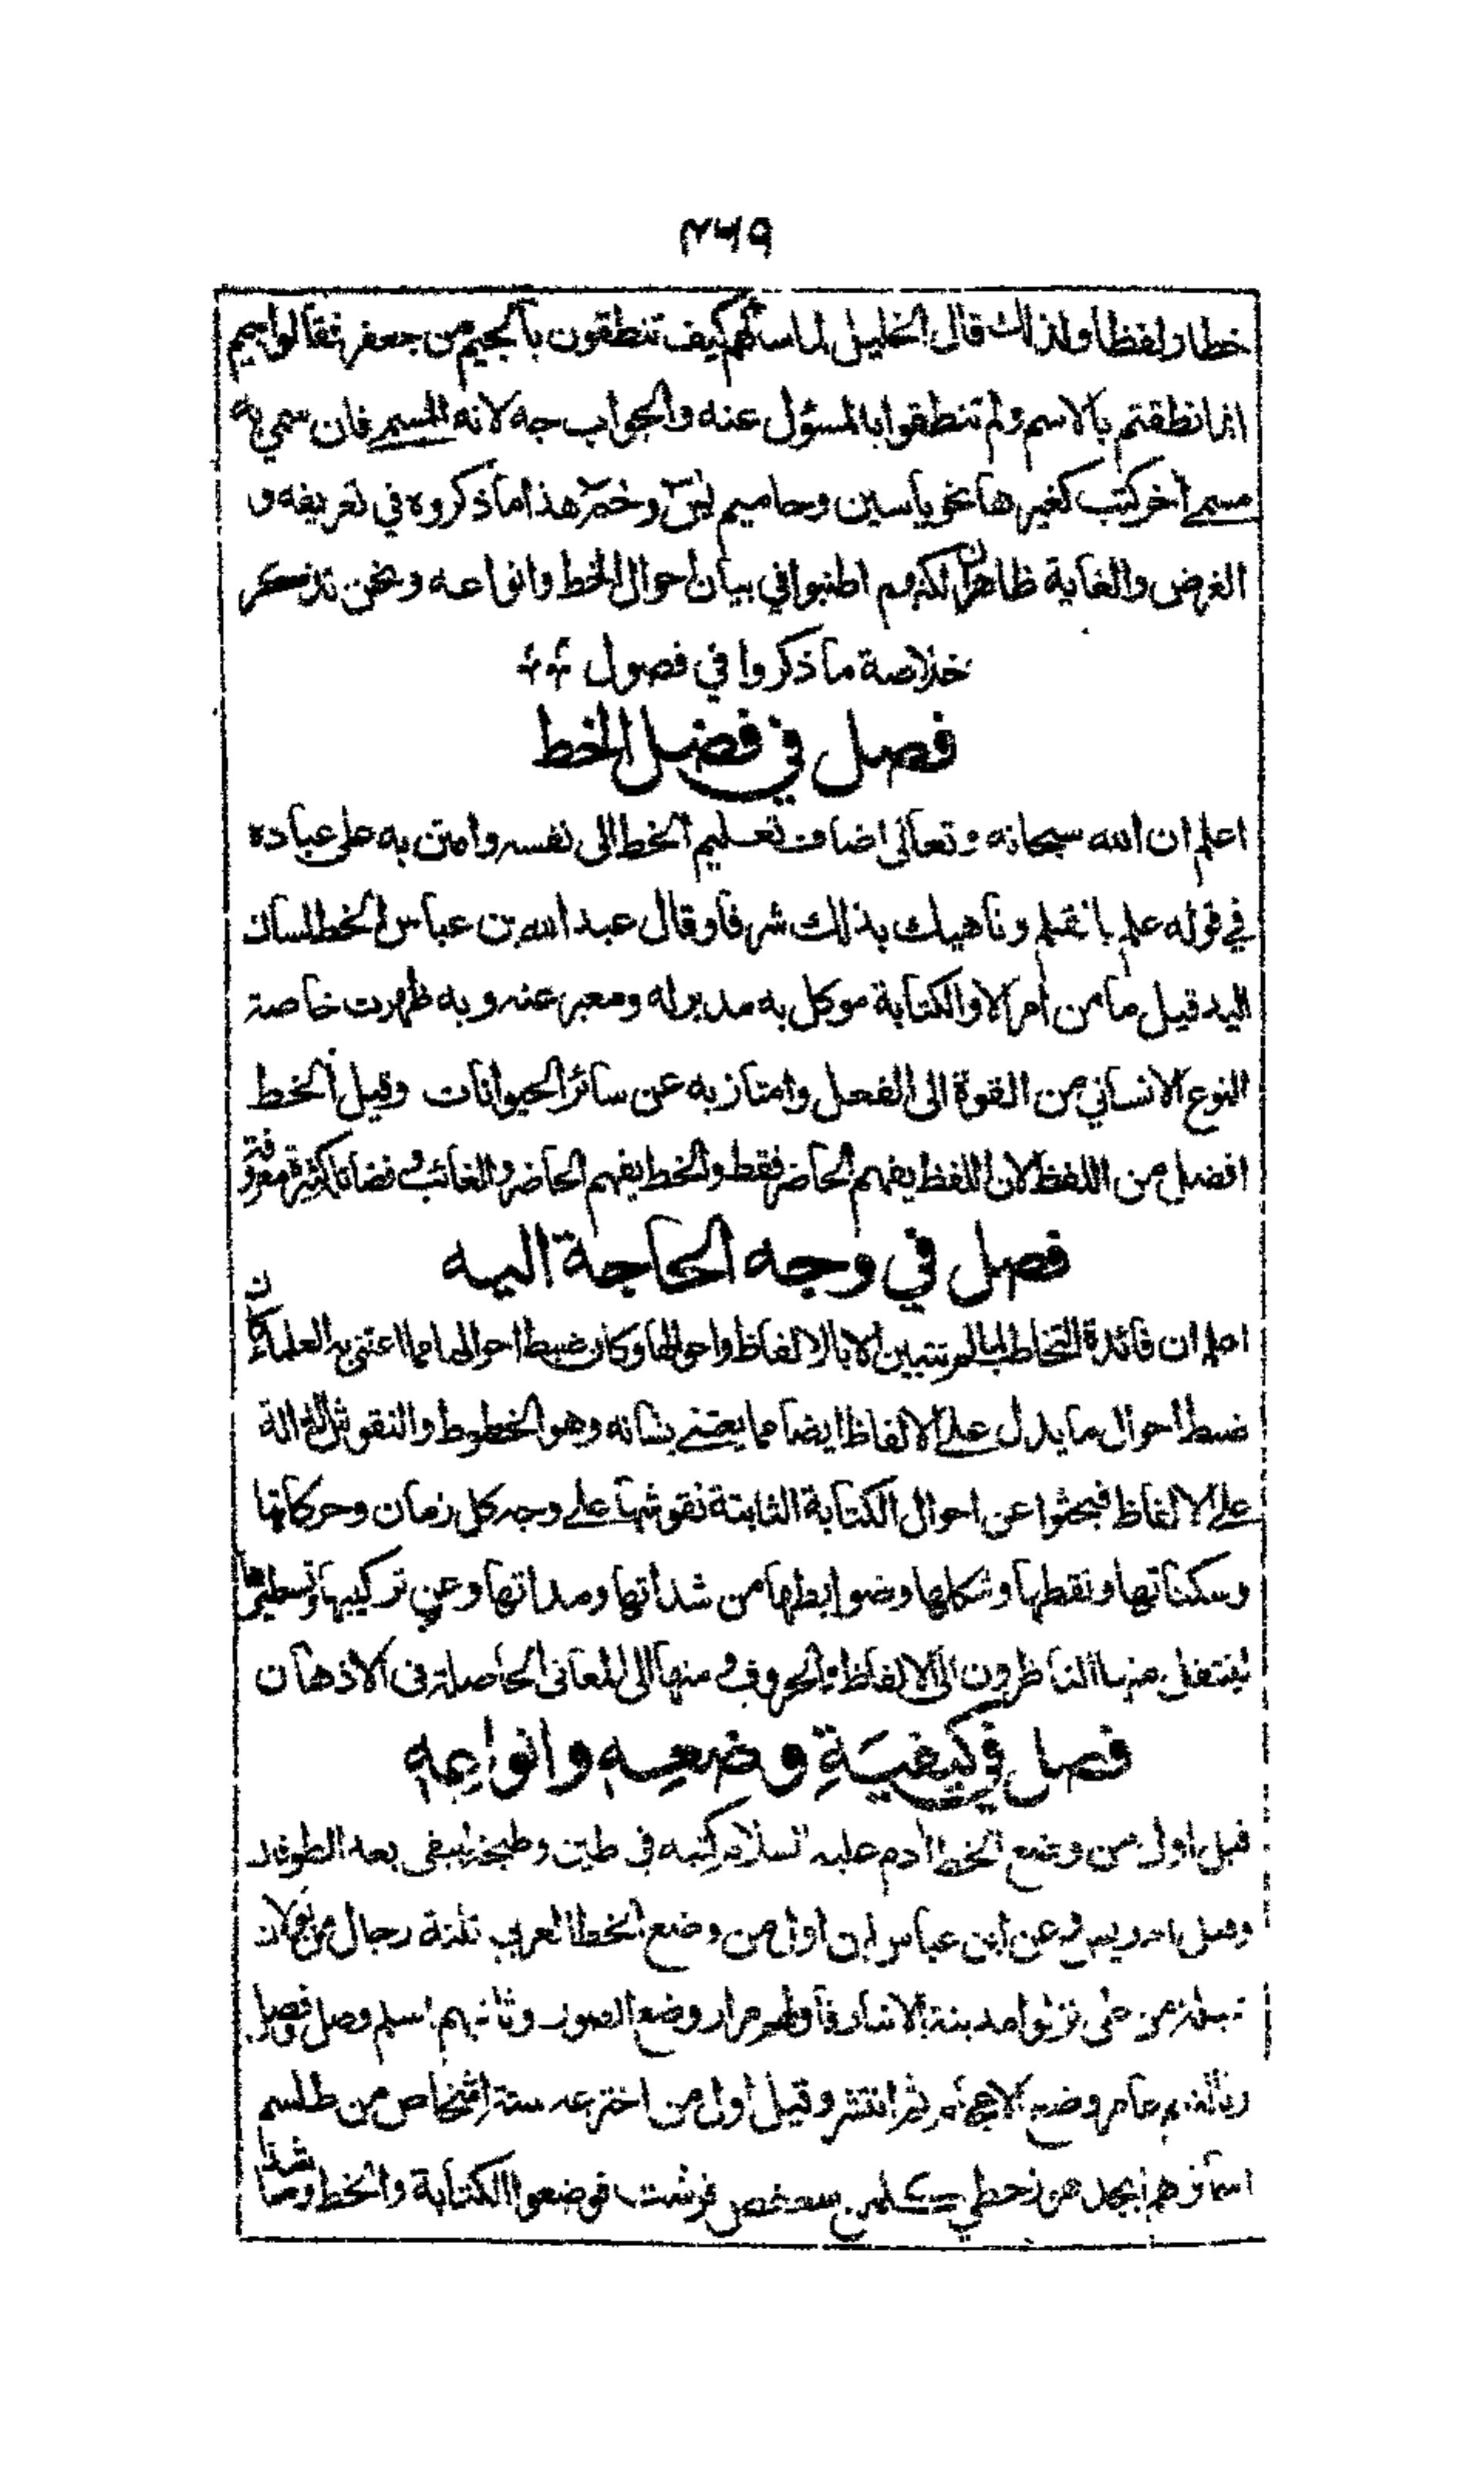 ٤٦٩
خطا ولفظا ولذلك قال الخليل لما سألهم كيف تنطقون بالجيم من جعفر فقالوا جيم
انما نطقتم بالاسم ولم تنطقوا بالمسؤل عنه والجواب جه لانه المسمى فان سمي به
مسمى آخر كتب كغيرها نحو ياسين وحاميم يس وحم هذا ما ذكروه في تعريفه و
الغرض والغاية ظاهران لكنهم اطنبوا في بيان احوال الخط وانواعه ونحن نذكر
خلاصة ما ذكروا في فصول
فصل في فضل الخط
اعلم ان الله سبحانه وتعالى اضاف تعليم الخط الى نفسه وامتن به على عباده
في قوله علم بالقلم وناهيك بذلك شرفا وقال عبد الله بن عباس الخط لسان
اليد قيل ما من أمر الا والكتابة موكل به مدبر له ومعبر عنه وبه ظهرت خاصة
النوع الانساني من القوة الى الفعل وامتاز به عن سائر الحيوانات وقيل الخط
افضل من اللفظ لان اللفظ يفهم الحاضر فقط والخط يفهم الحاضر والغائب وفضائله كثيرة معروفة
فصل في وجه الحاجة اليه
اعلم ان فائدة التخاطب لما لم تتبين الا بالالفاظ واحوالها وكان ضبط احوالها مما اعتنى به العلماء كان
ضبط احوال ما يدل على الالفاظ ايضا مما يعتنى بشانه وهو الخطوط والنقوش الدالة
على الالفاظ فبحثوا عن احوال الكتابة الثابتة نقوشها على وجه كل زمان وحركاتها
وسكناتها ونقطها وشكلها وضوابطها من شداتها ومداتها وعن تركيبها وتسطيرها
لينتقل منها الناظرون الى الالفاظ والحروف و منها الى المعانى الحاصلة فى الاذهان
فصل في كيفية وضعه وانواعه
قيل اول من وضع الخط آدم عليه السلام كتبه فى طين وطبخه ليبقى بعد الطوفان
وقيل ادريس وعن ابن عباس ان اول من وضع الخط العربي ثلثة رجال من بولان
قبيلة من طى نزلوا مدينة الانبار فاولهم مرار وضع الصور وثانيهم اسلم وصل وفصل
وثالثهم عامر وضع الاعجام ثم انتشر وقيل اول من اخترعه ستة اشخاص من طلسم
اسماؤهم ابجد هوز حطي كلمن سعفص قرشت فوضعوا الكتابة والخط وما شذ